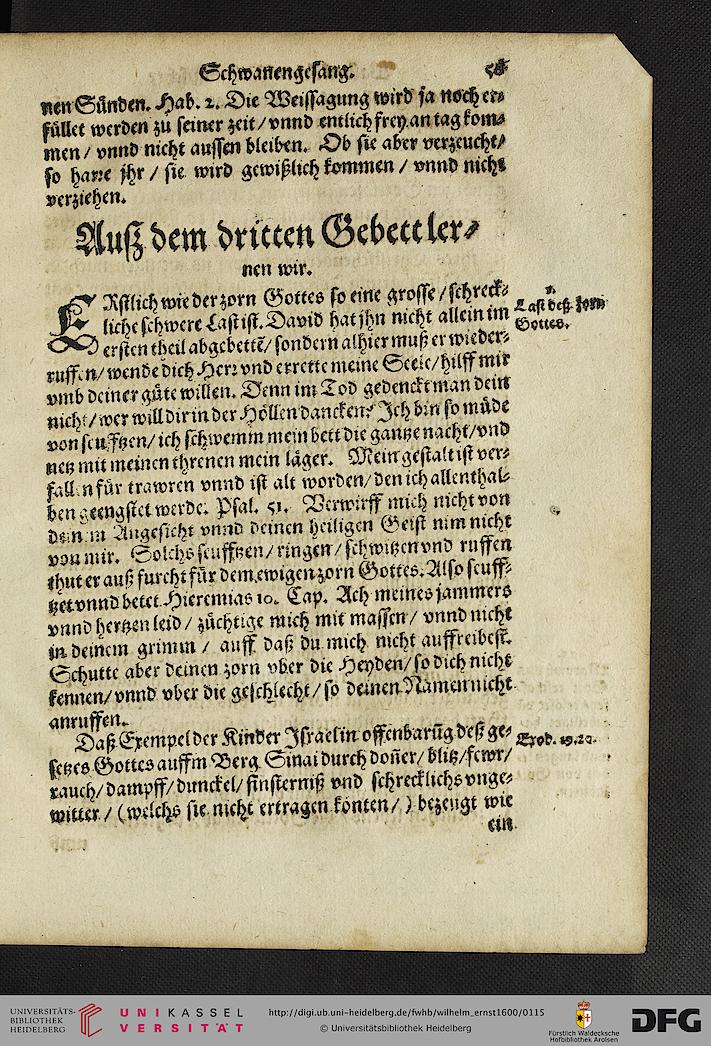 Schwanengesang.
nen Sünden. Hab. 2. Die Weissagung wird ja noch er⸗
füllet werden zu seiner zeit / vnnd entlich frey an tag kom⸗
men / vnnd nicht aussen bleiben. Ob sie aber verzeucht/
so harre jhr / sie wird gewißlich kommen / vnnd nicht
verziehen.
Auß dem dritten Gebett ler⸗
nen wir.
ERstlich wie der zorn Gottes so eine grosse / schreck⸗
1.
Last deß zorn
Gottes.
liche schwere Last ist. David hat jhn nicht allein im
ersten theil abgebettē/ sondern alhier muß er wieder⸗
ruffen/ wende dich Herr vnd errette meine Seele/ hilff mir
vmb deiner güte willen. Denn im Tod gedenckt man dein
nicht/ wer will dir in der Höllen dancken? Ich bin so müde
von seufftzen/ ich schwemm mein bett die gantze nacht/ vnd
netz mit meinen threnen mein läger. Mein gestalt ist ver⸗
fallen für trawren vnnd ist alt worden/ den ich allenthal⸗
ben geengstet werde. Psal. 51. Verwirff mich nicht von
deinem Angesicht vnnd deinen heiligen Geist nim nicht
von mir. Solchs seufftzen/ ringen/ schwitzen vnd ruffen
thut er auß furcht für dem ewigen zorn Gottes. Also seuff⸗
tzet vnnd betet Hieremias 10. Cap. Ach meines jammers
vnnd hertzen leid / züchtige mich mit massen/ vnnd nicht
in deinem grimm / auff daß du mich nicht auffreibest.
Schutte aber deinen zorn vber die Heyden/ so dich nicht
kennen/ vnnd vber die geschlecht/ so deinen Namen nicht
anruffen.
Daß Exempel der Kinder Israel in offenbarūg deß ge⸗
Exod. 19. 20.
setzes Gottes auffm Berg Sinai durch doñer/ blitz/ fewr/
rauch/ dampff/ dunckel/ finsterniß vnd schrecklichs vnge⸗
witter / (welchs sie nicht ertragen könten/ ) bezeugt wie
ein
UNIVERSITÄTS-
BIBLIOTHEK
HEIDELBERG
UNIKASSEL
VERSITÄT
http://digi.ub.uni-heidelberg.de/fwhb/wilhelm_ernst1600/0115
© Universitätsbibliothek Heidelberg
Fürstlich Waldecksche
Hofbibliothek Arolsen
DFG